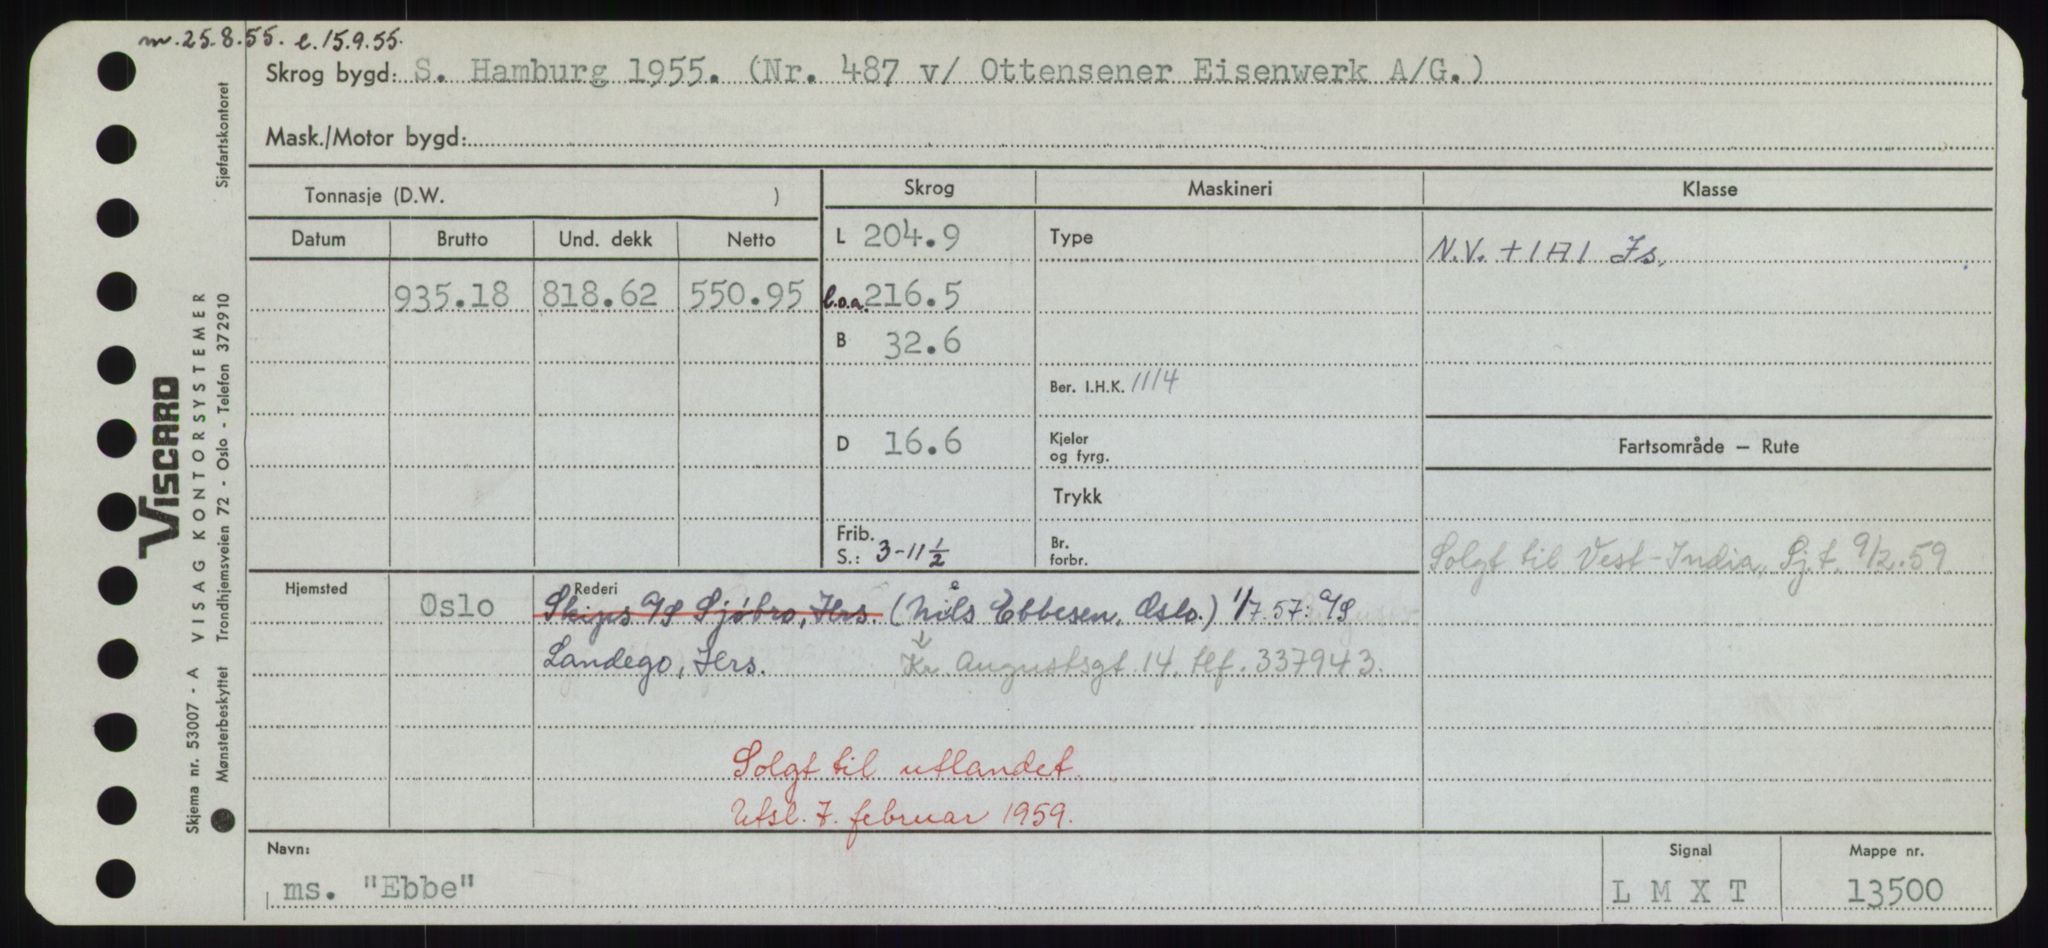 m. 25.8.55. e. 15.9.55.
Skrog bygd: S. Hamburg 1955. (Nr. 487 v/ Ottensener Eisenwerk A/G.)
Mask./Motor bygd:
Tonnasje (D.W. )
Skrog
Maskineri
Klasse
Datum Brutto Und. dekk Netto
L 204.9
Type
N.V. + 1A1 Is.
935.18 818.62 550.95
l.o.a. 216.5
B 32.6
Ber. I.H.K. 1114
D 16.6
Kjeler
og fyrg.
Fartsområde — Rute
Trykk
Frib.
S.: 3-11 1/2
Br.
forbr.
Solgt til Vest-India, Sj.t. 9/2.59
Hjemsted
Rederi
Oslo
Skips A/S Sjøbro, Hrs. (Niels Ebbesen, Oslo.) 1/7.57: A/S
Landego, Hrs. Kr. Augustsgt 14. tlf. 337943.
Solgt til utlandet.
Utsl. 7. februar 1959.
Navn:
ms. "Ebbe"
Signal
L M X T
Mappe nr.
13500
Skjema nr. 53007 - A VISAG KONTORSYSTEMER Sjøfartskontoret
VISCARD
Mønsterbeskyttet Trondhjemsveien 72 - Oslo - Telefon 372910